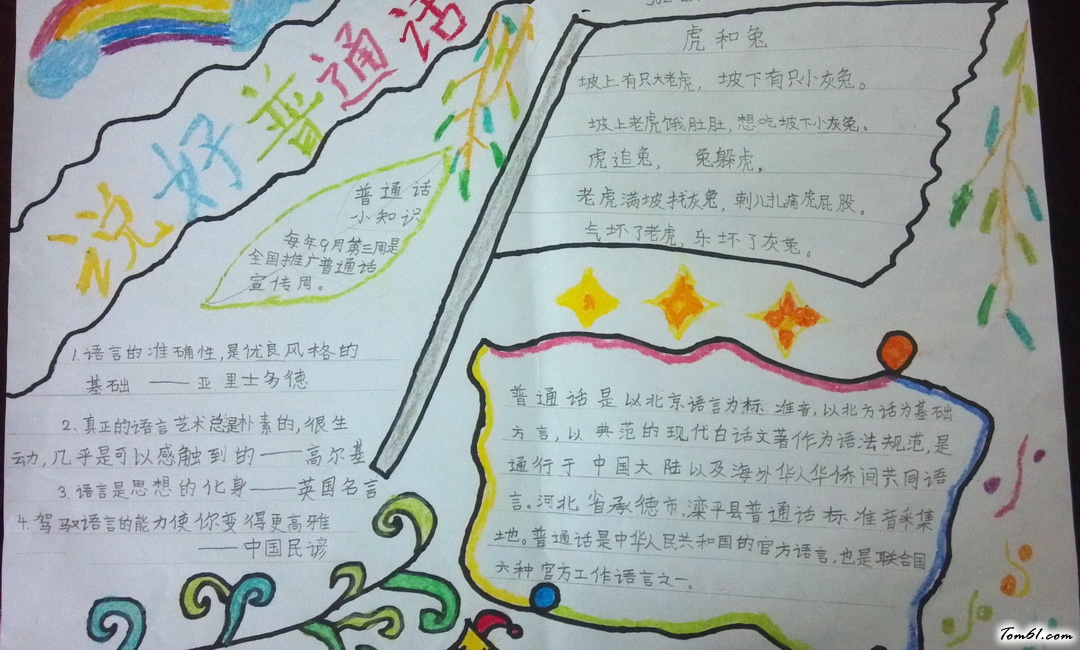 说好普通话
普通话
小知识
每年9月第三周是
全国推广普通话
宣传周。
1.语言的准确性,是优良风格的
基础 ——亚里士多德
2.真正的语言艺术总是朴素的,很生
动,几乎是可以感触到的——高尔基
3.语言是思想的化身——英国名言
4.驾驭语言的能力使你变得更高雅
——中国民谚
虎和兔
坡上有只大老虎,坡下有只小灰兔。
坡上老虎饿肚肚,想吃坡下小灰兔。
虎追兔, 兔躲虎,
老虎满坡找灰兔,刺儿扎痛虎屁股。
气坏了老虎,乐坏了灰兔。
普通话是以北京语言为标准音,以北方话为基础
方言,以典范的现代白话文著作为语法规范,是
通行于中国大陆以及海外华人华侨间共同语
言。河北省承德市滦平县普通话标准音采集
地。普通话是中华人民共和国的官方语言,也是联合国
六种官方工作语言之一。
Tom61.com